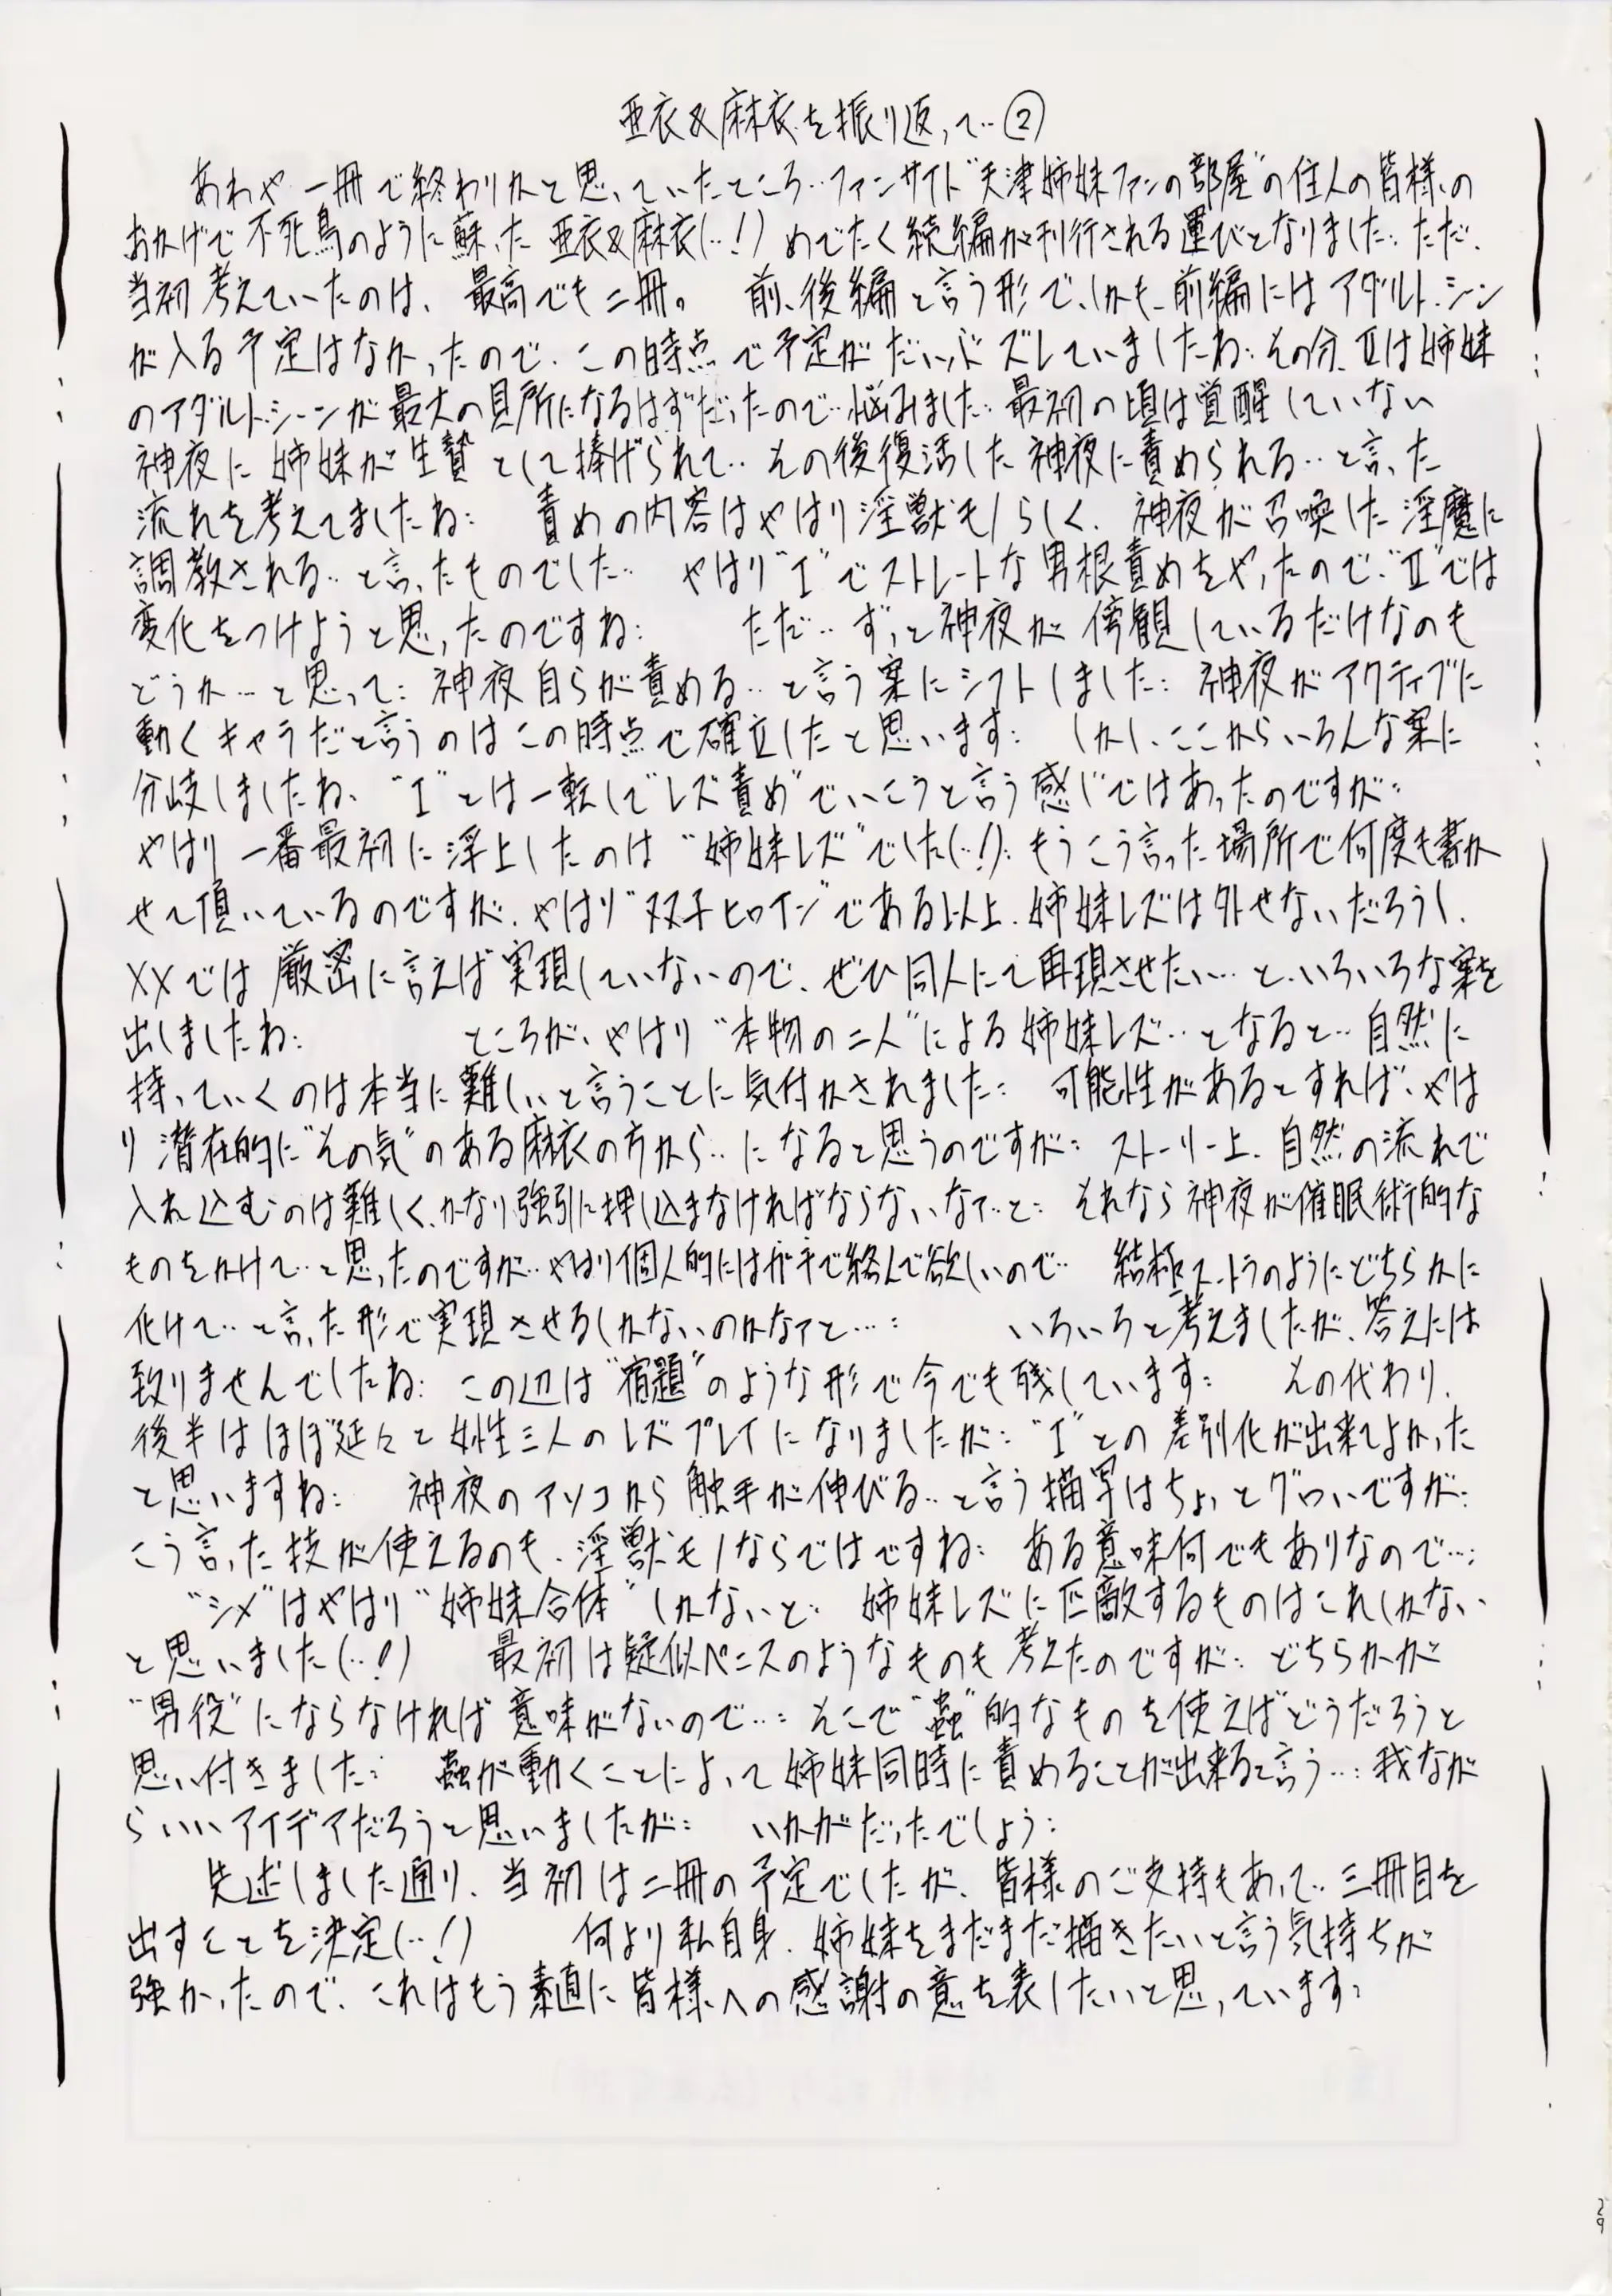 亜衣&麻衣を振り返って…②
あわや一冊で終わりかと思っていたところ…ファンサイト"天津姉妹ファンの部屋"の住人の皆様の
おかげで不死鳥のように蘇った亜衣&麻衣(…!)めでたく続編が刊行される運びとなりました…ただ、
当初考えていたのは、最高でも二冊。 前、後編と言う形で、しかも、前編にはアダルト・シーン
が入る予定はなかったので、この時点で予定がだいぶズレていましたね…その分、Ⅱは姉妹
のアダルト・シーンが最大の見所になるはずだったので…悩みました…最初の頃は覚醒していない
神夜に姉妹が生贄として捧げられて…その後復活した神夜に責められる…と言った
流れを考えてましたね… 責めの内容はやはり淫獣モノらしく、神夜が召喚した淫魔に
調教される…と言ったものでした… やはり"Ⅰ"でストレートな男根責めをやったので…"Ⅱ"では
変化をつけようと思ったのですね… ただ…ずっと神夜が傍観しているだけなのも
どうか…と思って…神夜自らが責める…と言う案にシフトしました…神夜がアクティブに
動くキャラだと言うのはこの時点で確立したと思います… しかし、ここからいろんな案に
分岐しましたね、"Ⅰ"とは一転して"レズ責め"でいこうと言う感じではあったのですが…
やはり一番最初に浮上したのは"姉妹レズ"でした(…!)…もうこう言った場所で何度も書か
せて頂いているのですが、やはり"双子ヒロイン"である以上、姉妹レズは外せないだろうし、
XXでは厳密に言えば実現していないので、ぜひ同人にて再現させたい…と、いろいろな案を
出しましたね… ところが、やはり"本物の二人"による姉妹レズ…となると…自然に
持っていくのは本当に難しいと言うことに気付かされました… 可能性があるとすれば、やは
り潜在的に"その気"のある麻衣の方から…になると思うのですが… ストーリー上、自然の流れで
入れ込むのは難しく、かなり強引に押し込まなければならないなァ…と… それなら神夜が催眠術的な
ものをかけて…と思ったのですが…やはり個人的にはガチで絡んで欲しいので… 結極スートラのようにどちらかに
化けて…と言った形で実現させるしかないのかなァと…… いろいろと考えましたが、答えには
致りませんでしたね… この辺は"宿題"のような形で今でも残しています… その代わり、
後半はほぼ延々と女性三人のレズプレイになりましたが…"Ⅰ"との差別化が出来てよかった
と思いますね… 神夜のアソコから触手が伸びる…と言う描写はちょっとグロいですが…
こう言った技が使えるのも、淫獣モノならではですね… ある意味何でもありなので……
"シメ"はやはり"姉妹合体"しかないと… 姉妹レズに匹敵するものはこれしかない
と思いました(…!) 最初は疑似ペニスのようなものも考えたのですが… どちらかが
"男役"にならなければ意味がないので……そこで"蟲"的なものを使えばどうだろうと
思い付きました… 蟲が動くことによって姉妹同時に責めることが出来ると言う……我なが
らいいアイデアだろうと思いましたが… いかがだったでしょう…
先述しました通り、当初は二冊の予定でしたが、皆様のご支持もあって…三冊目を
出すことを決定(…!) 何より私自身、姉妹をまだまだ描きたいと言う気持ちが
強かったので、これはもう素直に皆様への感謝の意を表したいと思っています…
29